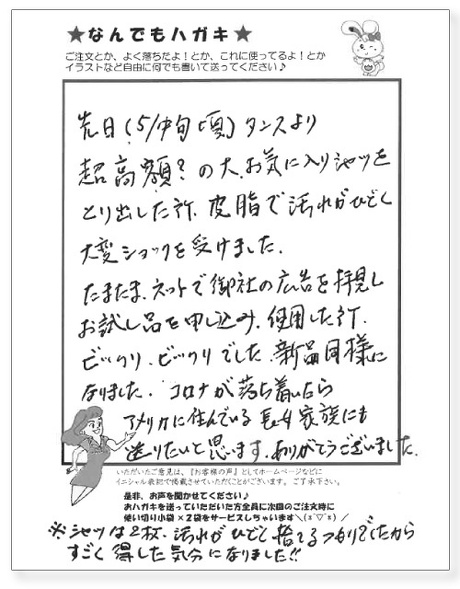 ★なんでもハガキ★
ご注文とか、よく落ちたよ！とか、これに使ってるよ！とか
イラストなど自由に何でも書いて送ってください♪
先日(5/中旬頃)タンスより
超高額？の大お気に入りシャツを
とり出した所、皮脂で汚れがひどく
大変ショックを受けました。
たまたま、ネットで御社の広告を拝見し
お試し品を申し込み、使用した所、
ビックリ、ビックリでした。新品同様に
なりました。コロナが落ち着いたら
アメリカに住んでいる長女家族にも
送りたいと思います。ありがとうございました。
いただいたご意見は、『お客様の声』としてホームページなどに
イニシャル表記で掲載させていただくことがございます。ご了承下さい。
是非、お声を聞かせてください♪
おハガキを送っていただいた方全員に次回のご注文時に
使い切り小袋×2袋をサービスしちゃいます＼(≧▽≦)／
※シャツは2枚、汚れがひどく捨てるつもりでしたから
すごく得した気分になりました!!